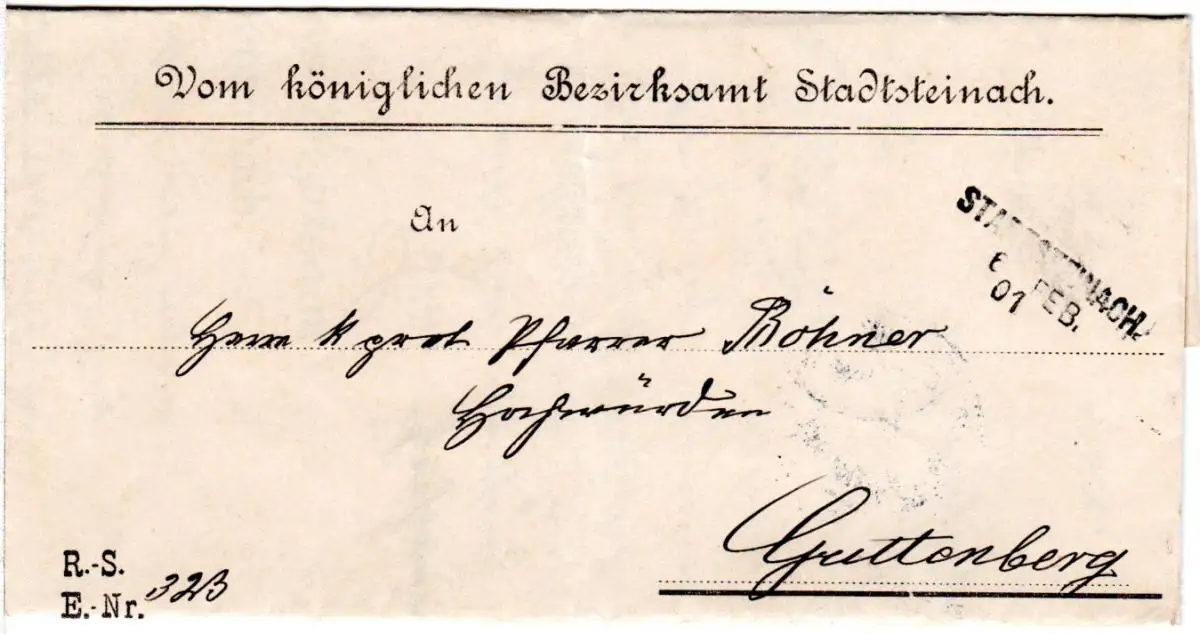 Vom königlichen Bezirksamt Stadtsteinach.
An
STADTSTEINACH.
6 FEB.
01
Herrn k prot Pfarrer Böhner
Hochwürden
Guttenberg
R.-S.
E.-Nr. 323